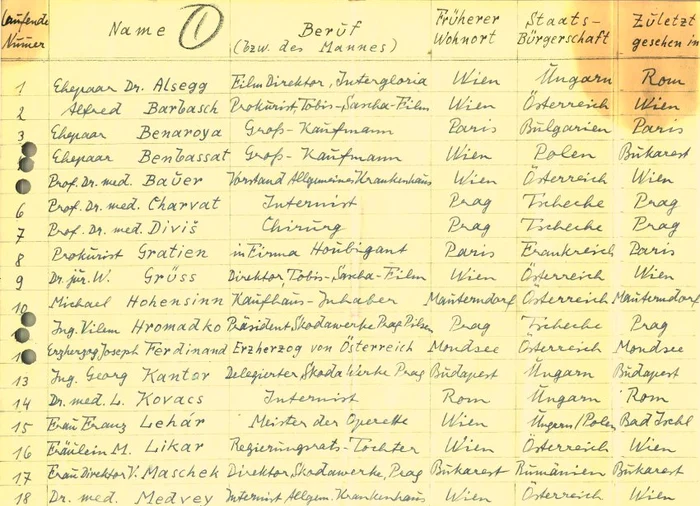 Laufende Numer | Name ① | Beruf (bzw. des Mannes) | Früherer Wohnort | Staats-Bürgerschaft | Zuletzt gesehen in
1 Ehepaar Dr. Alsegg Filmdirektor, Intergloria Wien Ungarn Rom
2 Alfred Barbasch Prokurist, Tobis-Sascha-Film Wien Österreich Wien
3 Ehepaar Benaroya Groß-Kaufmann Paris Bulgarien Paris
Ehepaar Benbassat Groß-Kaufmann Wien Polen Bukarest
Prof. Dr. med. Bauer Vorstand Allgemeines Krankenhaus Wien Österreich Wien
6 Prof. Dr. med. Charvat Internist Prag Tscheche Prag
7 Prof. Dr. med. Diviš Chirurg Prag Tscheche Prag
8 Prokurist Gratien in Firma Houbigant Paris Frankreich Paris
9 Dr. jur. W. Grüss Direktor, Tobis-Sascha-Film Wien Österreich Wien
10 Michael Hohensinn Kaufhaus-Inhaber Mauterndorf Österreich Mauterndorf
Ing. Vilem Hromadko Präsident Skodawerke Prag Pilsen Prag Tscheche Prag
1 Erzherzog Joseph Ferdinand Erzherzog von Österreich Mondsee Österreich Mondsee
13 Ing. Georg Kantor Delegierter, Skoda Werke Prag Budapest Ungarn Budapest
14 Dr. med. L. Kovacs Internist Rom Ungarn Rom
15 Frau Franz Lehár Meister der Operette Wien Ungarn/Polen Bad Ischl
16 Fräulein M. Likar Regierungsrats-Tochter Wien Österreich Wien
17 Frau Direktor V. Maschek Direktor, Skodawerke, Prag Bukarest Rumänien Bukarest
18 Dr. med. Medvey Internist Allgem. Krankenhaus Wien Österreich Wien